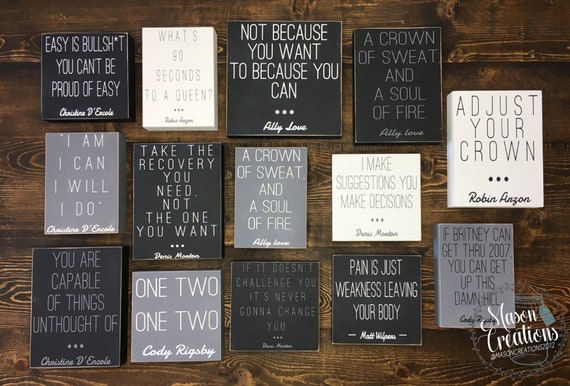 EASY IS BULLSH*T
YOU CAN'T BE
PROUD OF EASY
Christine D'Ercole
WHAT'S
90
SECONDS
TO A QUEEN?
•••
Robin Arzon
NOT BECAUSE
YOU WANT
TO BECAUSE YOU
CAN
•••
Ally Love
A CROWN
OF SWEAT,
AND
A SOUL
OF FIRE.
•••
Ally love
ADJUST
YOUR
CROWN
•••
Robin Arzon
"I AM
I CAN
I WILL
I DO"
Christine D'Ercole
TAKE THE
RECOVERY
YOU
NEED,
NOT
THE ONE
YOU WANT
•••
Denis Morton
A CROWN
OF SWEAT,
AND
A SOUL
OF FIRE.
•••
Ally love
I MAKE
SUGGESTIONS YOU
MAKE DECISIONS
•••
Denis Morton
IF BRITNEY CAN
GET THRU 2007,
YOU CAN
GET UP
THIS
DAMN HILL"
Cody Rigsby
YOU ARE
CAPABLE
OF THINGS
UNTHOUGHT
OF
•••
Christine D'Ercole
ONE TWO
•••
ONE TWO
Cody Rigsby
IF IT DOESN'T
CHALLENGE YOU
IT'S NEVER
GONNA CHANGE
YOU
•••
Denis Morton
PAIN IS JUST
WEAKNESS LEAVING
YOUR BODY
— Matt Wilpers —
Mason
Creations
@MASONCREATIONS2012